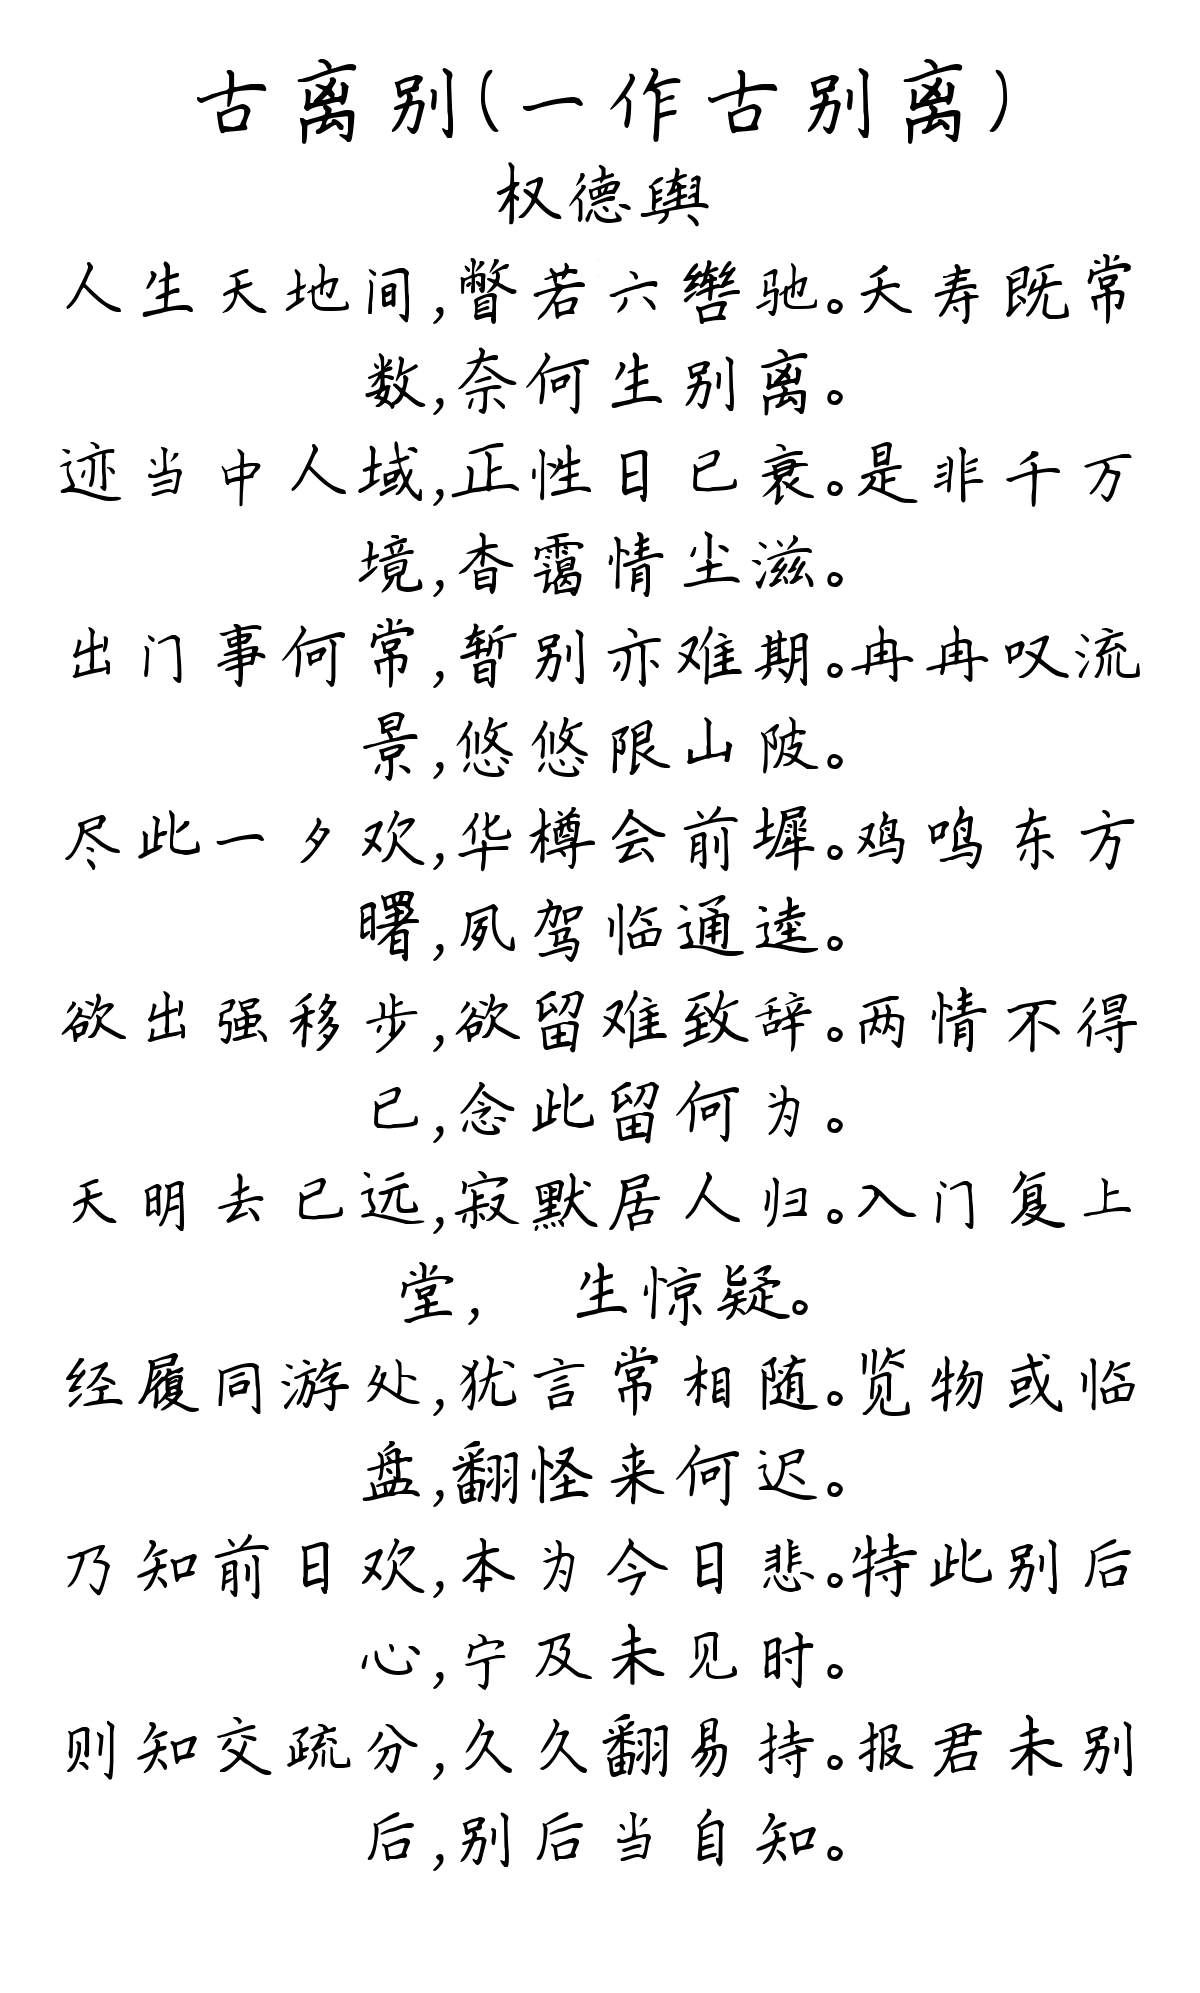 古离别(一作古别离)
权德舆
人生天地间,瞥若六辔驰。夭寿既常
数,奈何生别离。
迹当中人域,正性日已衰。是非千万
境,杳霭情尘滋。
出门事何常,暂别亦难期。冉冉叹流
景,悠悠限山陂。
尽此一夕欢,华樽会前墀。鸡鸣东方
曙,夙驾临通逵。
欲出强移步,欲留难致辞。两情不得
已,念此留何为。
天明去已远,寂默居人归。入门复上
堂, 生惊疑。
经履同游处,犹言常相随。览物或临
盘,翻怪来何迟。
乃知前日欢,本为今日悲。特此别后
心,宁及未见时。
则知交疏分,久久翻易持。报君未别
后,别后当自知。